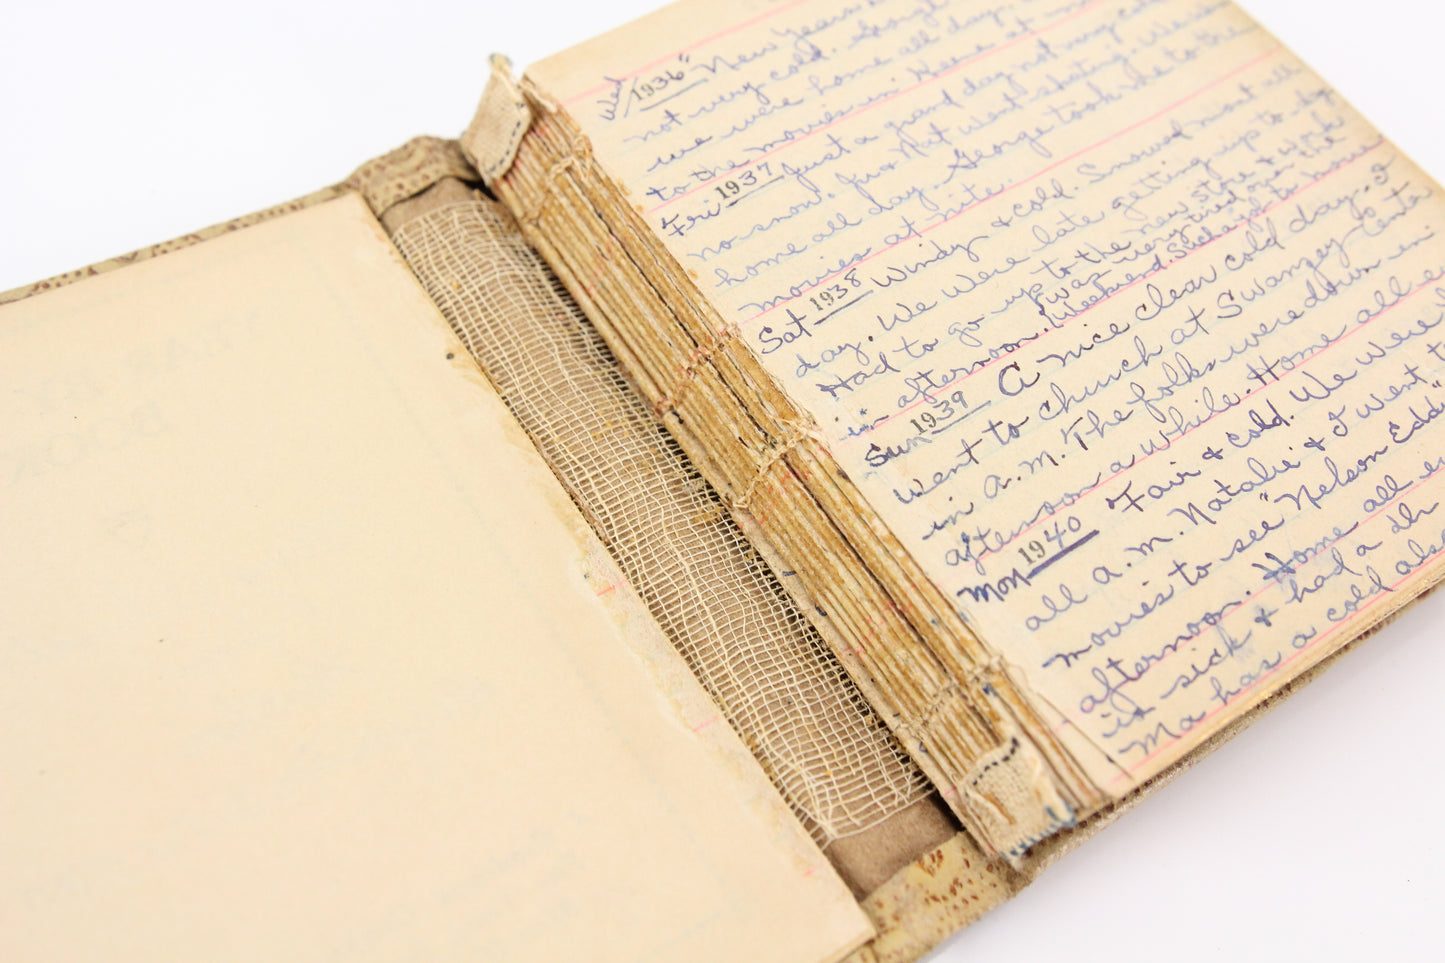 Wed 1936 "New Years
not very cold. George
we were home all day.
to the movies in Keene at
Fri 1937 Just a grand day not very
no snow. Nat went skating. We were
home all day. George took me to the
movies at nite.
Sat 1938 Windy & cold. Snowed most all
day. We were late getting up to-day.
Had to go up to the new store & work
in afternoon. I was very tired over the
Weekend.
Sun 1939 A nice clear cold day. I
went to church at Swanzey Center
in a.m. The folks were down in
afternoon a while. Home all
Mon 1940 Fair & cold. We were
all a.m. Natalie & I went to
movies to see "Nelson Eddy"
afternoon. Home all
is sick & had a
Ma has a cold also